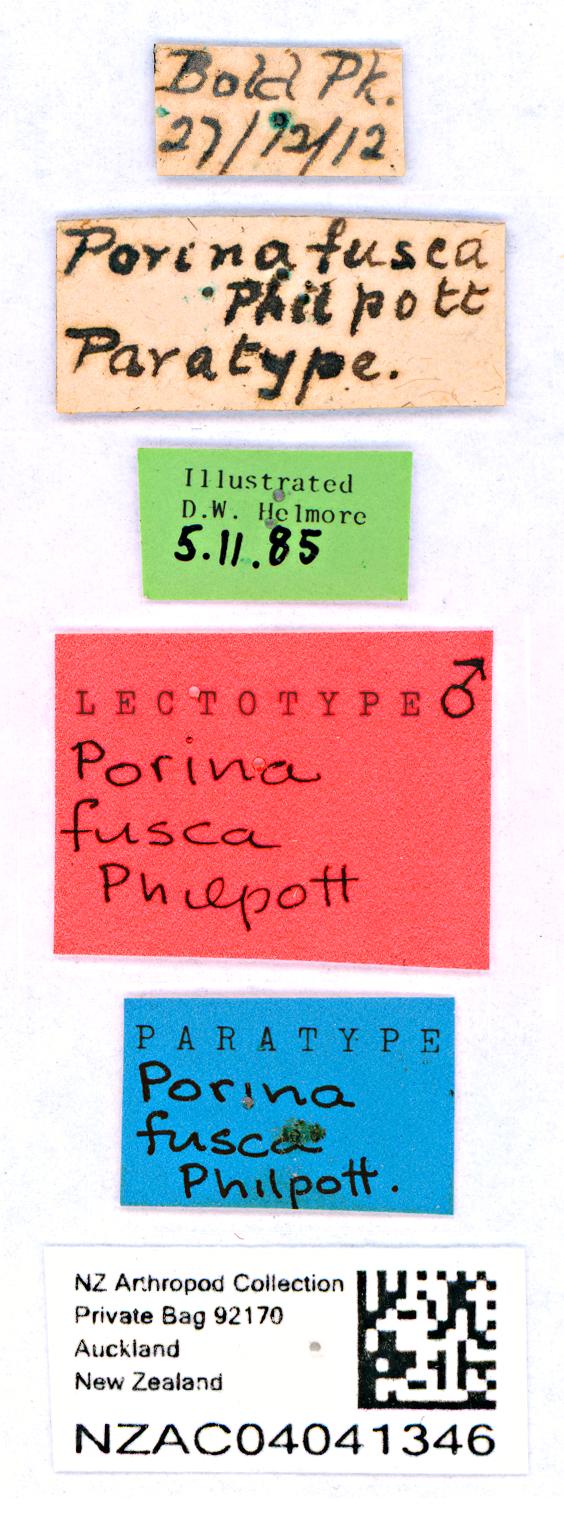 Bold Pk.
27/12/12
Porina fusca
Philpott
Paratype.
Illustrated
D.W. Helmore
5.11.85
LECTOTYPE ♂
Porina
fusca
Philpott
PARATYPE
Porina
fusca
Philpott.
NZ Arthropod Collection
Private Bag 92170
Auckland
New Zealand
NZAC04041346